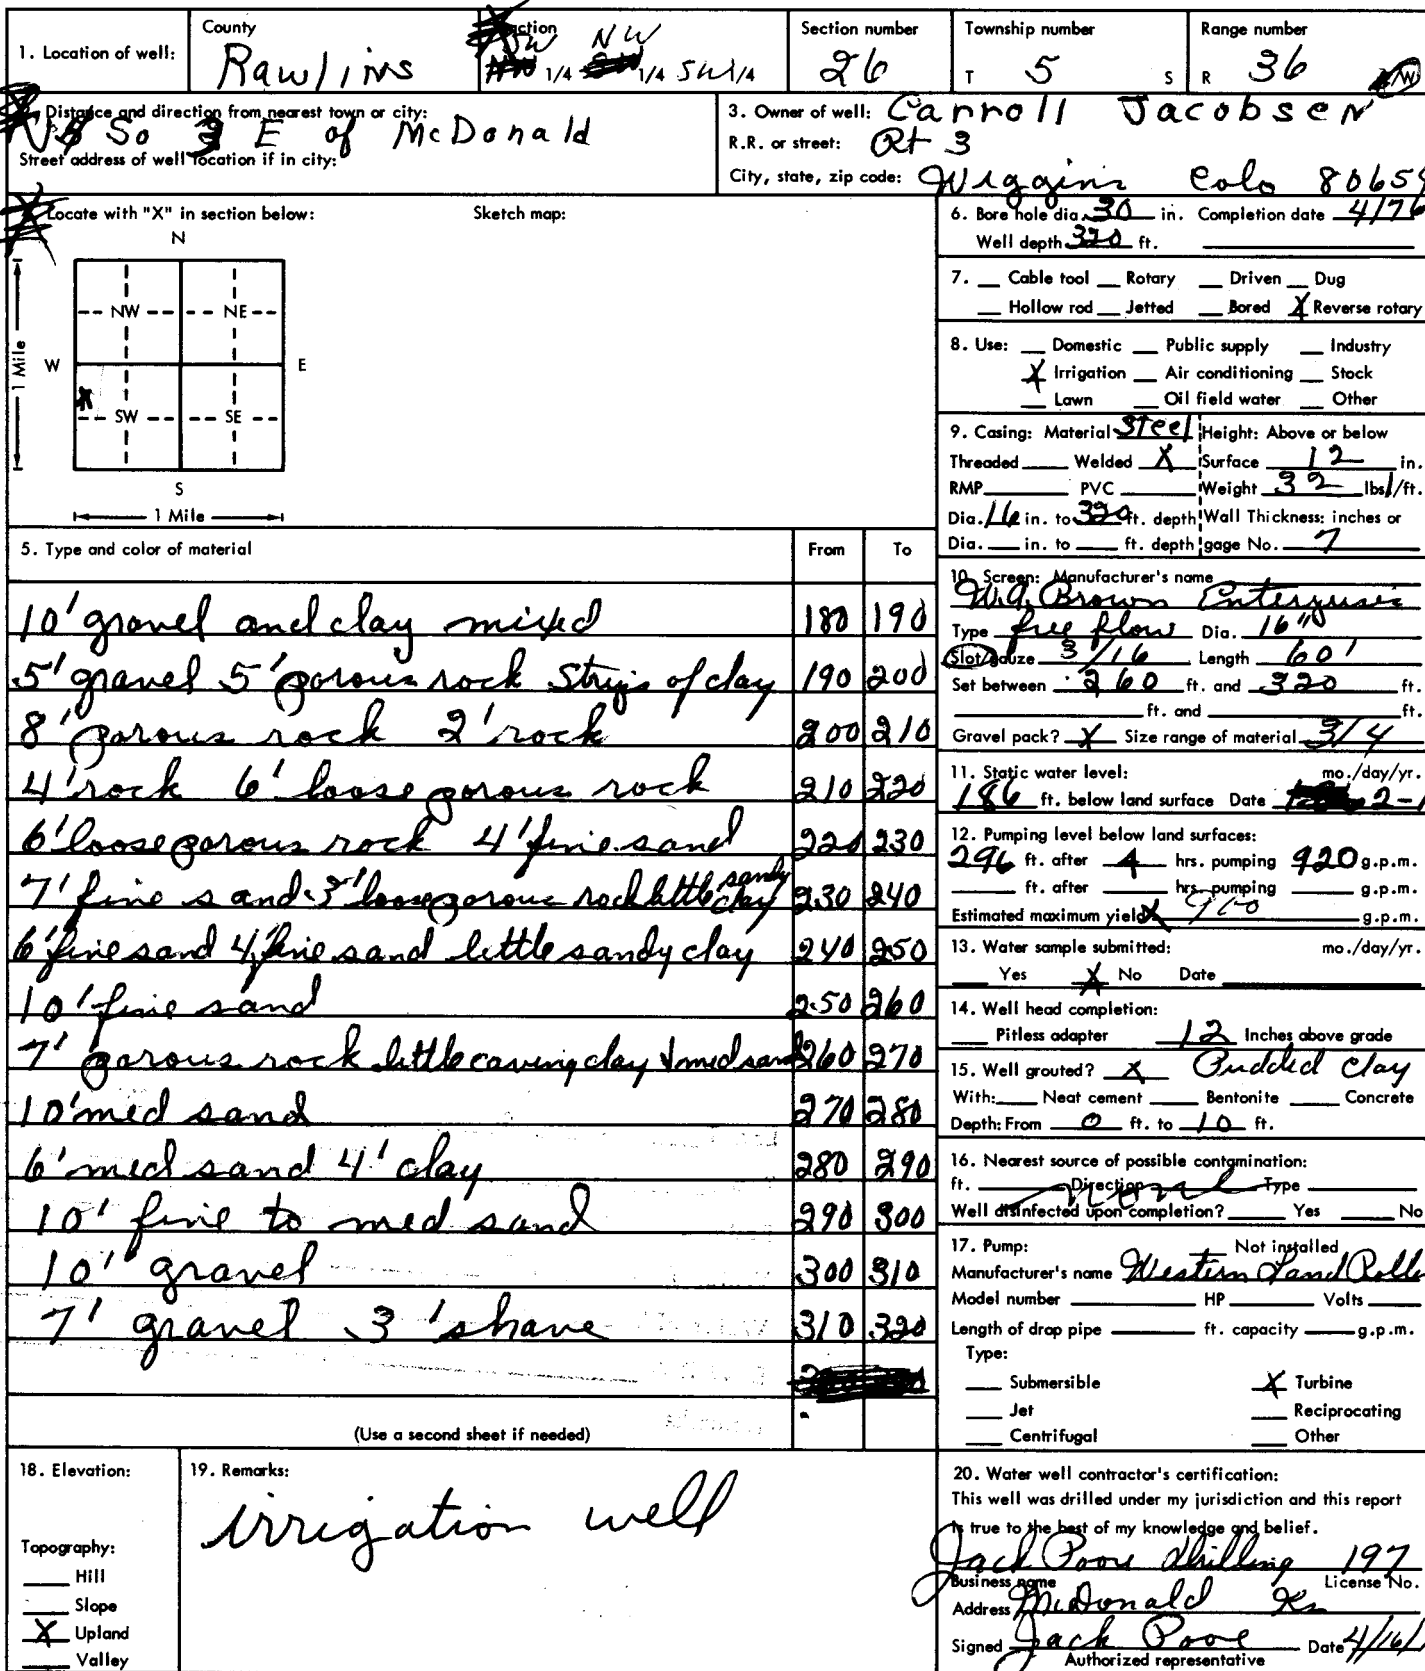 1. Location of well: County Rawlins Fraction SW 1/4 NW 1/4 SW 1/4 Section number 26 Township number T 5 S Range number R 36 E/W
2. Distance and direction from nearest town or city: So 3 E of McDonald
Street address of well location if in city:
3. Owner of well: Carroll Jacobsen
R.R. or street: Rt 3
City, state, zip code: Wiggins Colo
4. Locate with "X" in section below: Sketch map:
N
NW NE
W E
X
SW SE
S
1 Mile
1 Mile
5. Type and color of material From To
10' gravel and clay mixed 180 190
5' gravel 5' porous rock strips of clay 190 200
8' porous rock 2' rock 200 210
4' rock 6' loose porous rock 210 220
6' loose porous rock 4' fine sand 220 230
7' fine sand 3' loose porous rock little sandy clay 230 240
6' fine sand 4' fine sand little sandy clay 240 250
10' fine sand 250 260
7' porous rock little caving clay & med sand 260 270
10' med sand 270 280
6' med sand 4' clay 280 290
10' fine to med sand 290 300
10' gravel 300 310
7' gravel 3' shave 310 320
(Use a second sheet if needed)
6. Bore hole dia. 30 in. Completion date 4/76
Well depth 320 ft.
7. Cable tool Rotary Driven Dug
Hollow rod Jetted Bored X Reverse rotary
8. Use: Domestic Public supply Industry
X Irrigation Air conditioning Stock
Lawn Oil field water Other
9. Casing: Material Steel Height: Above or below
Threaded Welded X Surface 12 in.
RMP PVC Weight 32 lbs/ft.
Dia. 16 in. to 320 ft. depth Wall Thickness: inches or
Dia. in. to ft. depth gage No. 7
10. Screen: Manufacturer's name
W.A. Brown Enterprise
Type free flow Dia. 16"
Slot/gauze 3/16 Length 60'
Set between 260 ft. and 320 ft.
ft. and ft.
Gravel pack? X Size range of material 3/4
11. Static water level: mo./day/yr.
186 ft. below land surface Date
12. Pumping level below land surfaces:
296 ft. after 4 hrs. pumping 920 g.p.m.
ft. after hrs. pumping g.p.m.
Estimated maximum yield g.p.m.
13. Water sample submitted: mo./day/yr.
Yes X No Date
14. Well head completion:
Pitless adapter 12 Inches above grade
15. Well grouted? X Pudded clay
With: Neat cement Bentonite Concrete
Depth: From 0 ft. to 10 ft.
16. Nearest source of possible contamination:
ft. Direction none Type
Well disinfected upon completion? Yes No
17. Pump: Not installed
Manufacturer's name Western Land Rolle
Model number HP Volts
Length of drop pipe ft. capacity g.p.m.
Type:
Submersible X Turbine
Jet Reciprocating
Centrifugal Other
18. Elevation:
Topography:
Hill
Slope
X Upland
Valley
19. Remarks:
irrigation well
20. Water well contractor's certification:
This well was drilled under my jurisdiction and this report
is true to the best of my knowledge and belief.
Jack Poore Drilling 197
Business name License No.
Address McDonald Ks
Signed Jack Poore Date 4/16/
Authorized representative